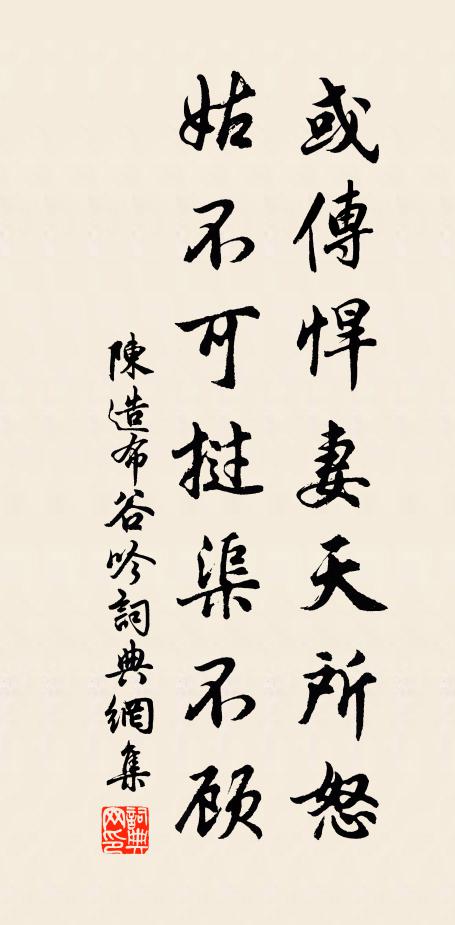 或傳悍妻天所怒
姑不可撻渠不顧
陳造布谷吟詞典網集
詞典
网印